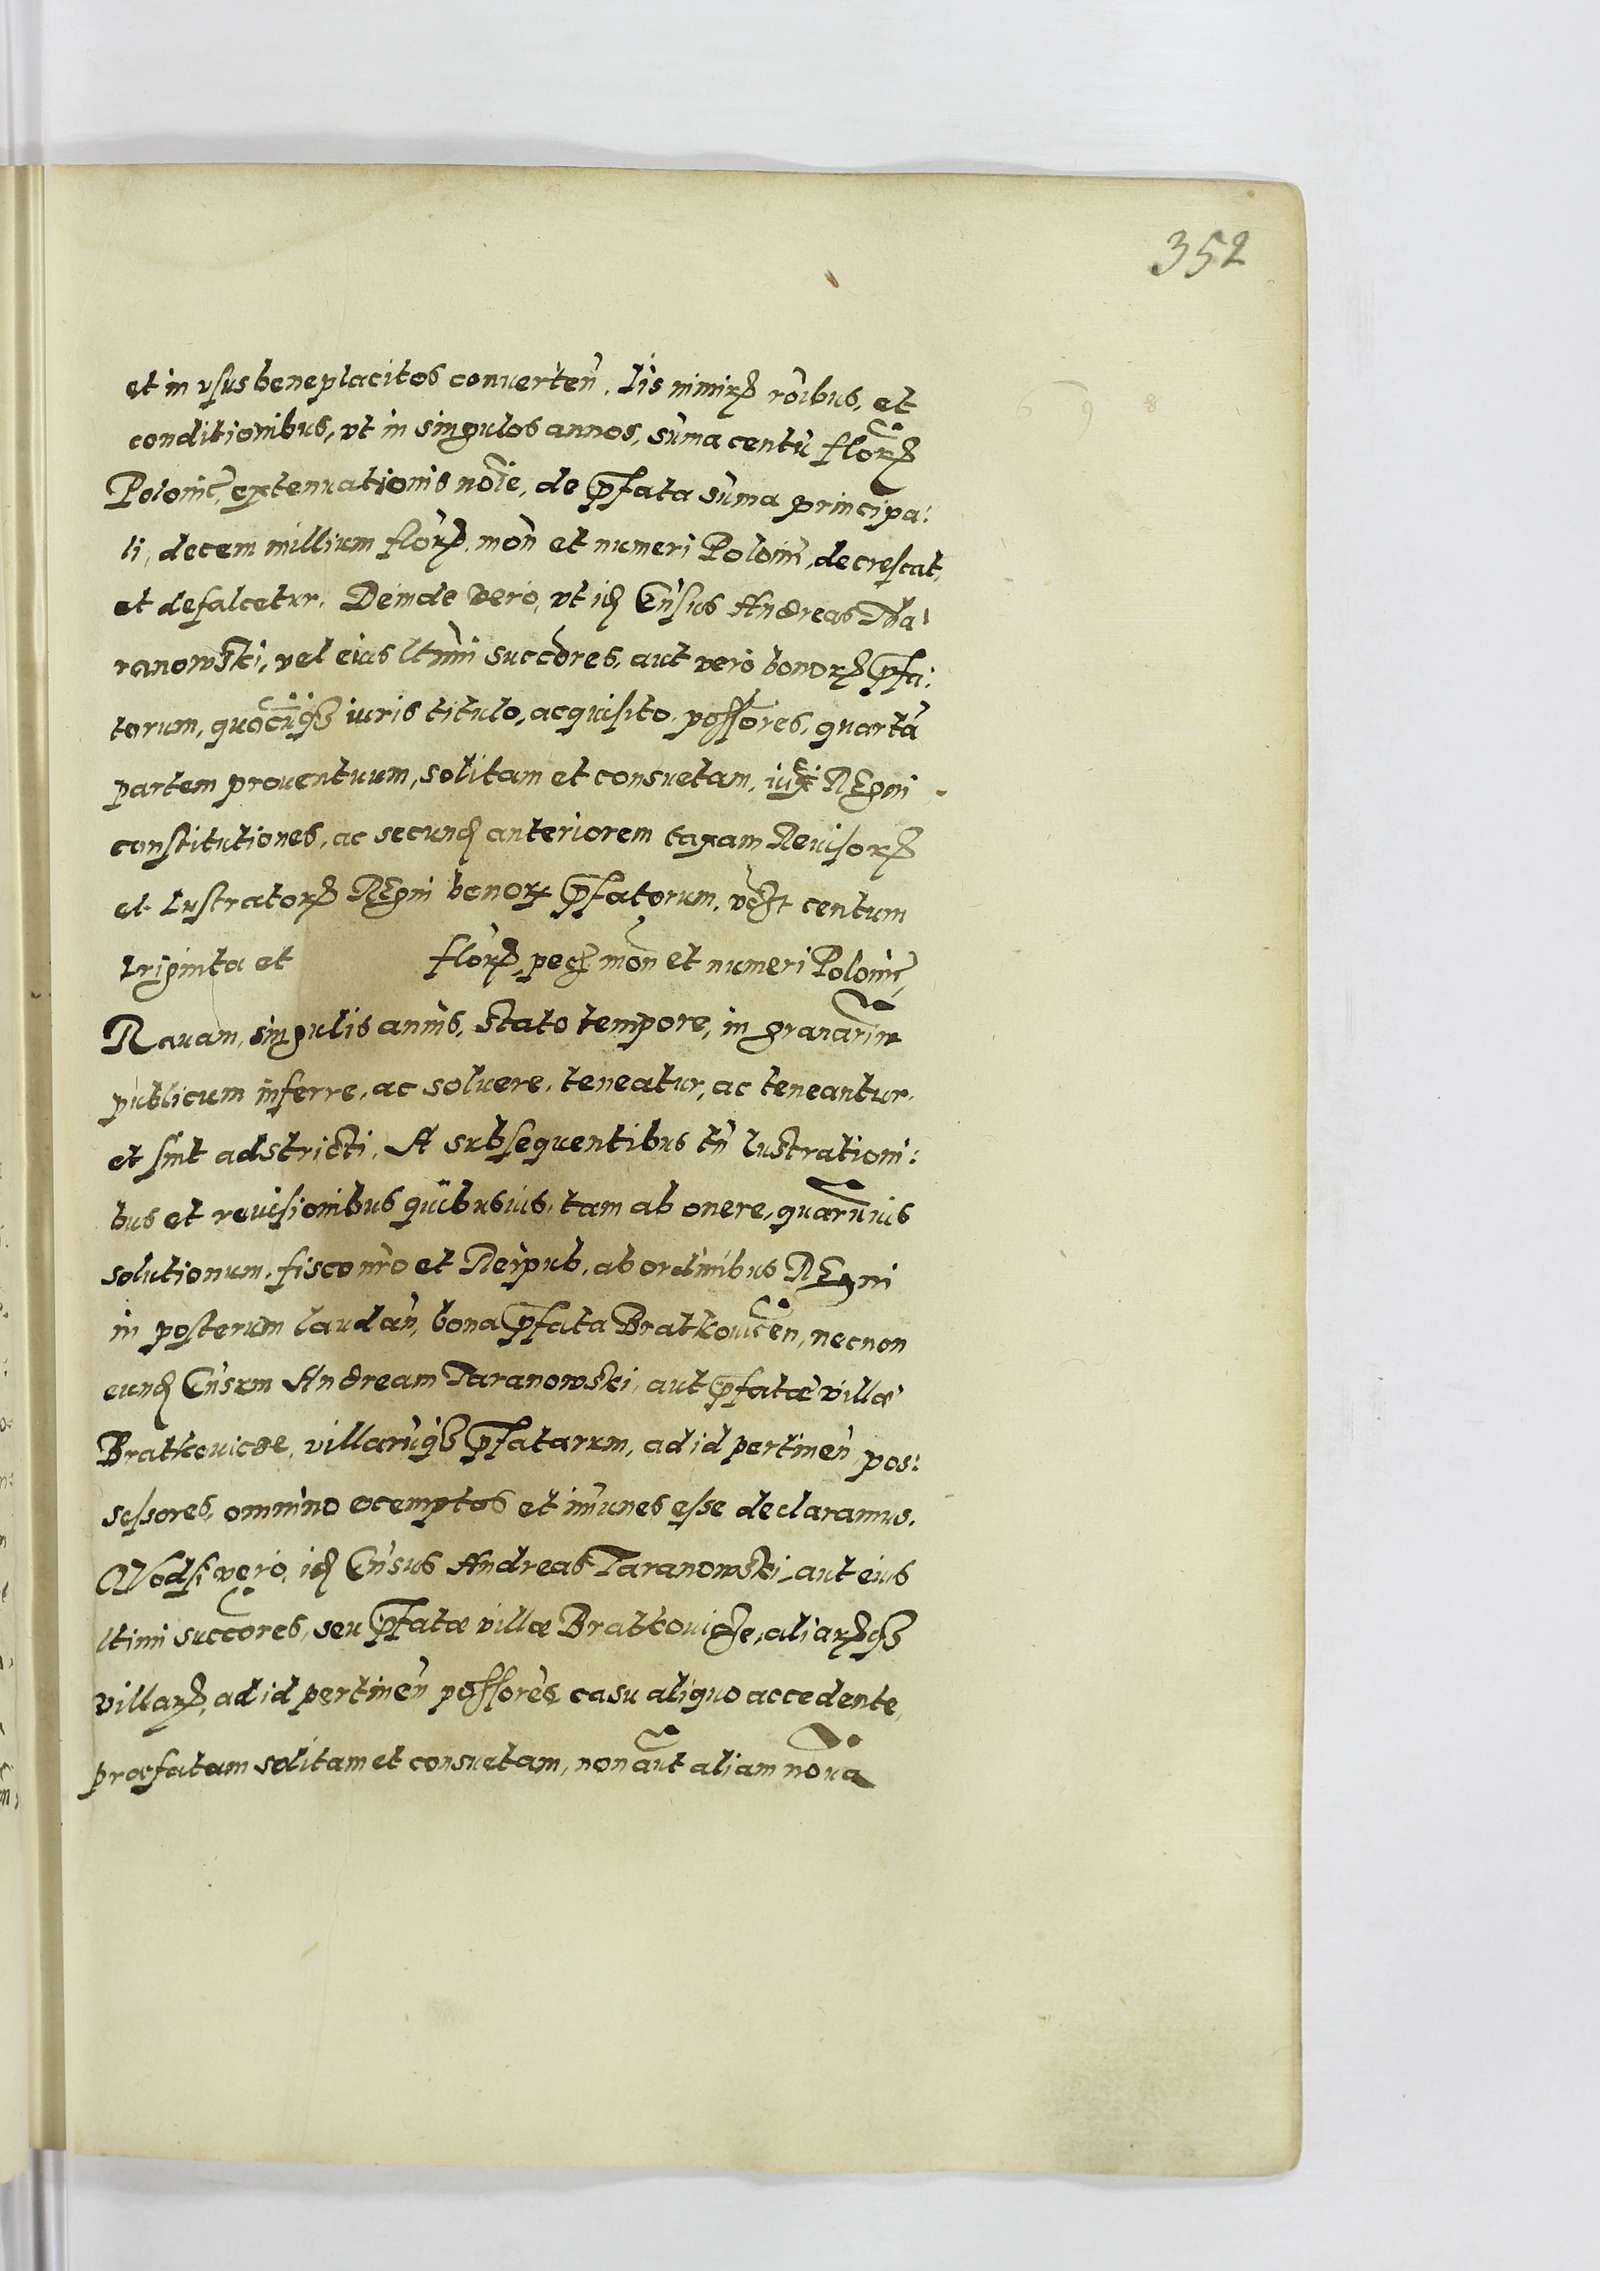 352
et in vsus beneplacitos conuerten̄. Iis nimirꝝ rōibus, et
conditionibus, vt in singulos annos, sūma centū florꝝ
Polonic̄, extenuationis nōie, de p̄fata sūma principa:
li, decem millium florꝝ, mon̄ et numeri Polonic̄, decrescat,
et defalcetur. Deinde vero, vt idꝫ Gn̄sus Andreas Tha:
ranowski, vel eius ltīmi succōres, aut vero bonorꝝ p̄fa:
torum, quocūqꝫ iuris titulo, acquisito, possōres, quartā
partem prouentuum, solitam et consuetam, iuxͣ Regni
constitutiones, ac secundꝫ anteriorem taxam Reuisorꝝ
et Lustratorꝝ Regni bonorꝝ p̄fatorum, vꝫ centum
triginta et florꝝ, pec̄ mon̄ et numeri Polonic̄,
Rauam, singulis annis, stato tempore, in granariūm
publicum inferre, ac soluere, teneatur, ac teneantur,
et sint adstricti. A subsequentibus tn̄ lustrationi:
bus et reuisionibus quibusuis, tam ab onere, quarūuis
solutionum, fisco nr̄o et Reipub, ab ordinibus Regni
in posterum laudan̄, bona p̄fata Bratkouicen̄, necnon
eundꝫ Gn̄sum Andream Taranowski, aut p̄fatæ villæ
Bratkouicze, villarūqꝫ p̄fatarum, ad id pertinen̄ pos:
sessores, omnino exemptos et im̄unes esse declaramus.
Quodsi vero, idꝫ Gn̄sus Andreas Taranowski, aut eius
ltimi succōres, seu p̄fatæ villæ Bratkouicze, aliarꝝqꝫ
villarꝝ, ad id pertinen̄ possōres casu aliquo accedente,
præfatam solitam et consuetam, non aūt aliam nouā